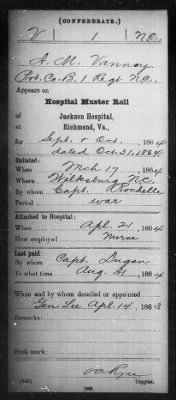 (CONFEDERATE.)
V 1 N.C.
A. M. Vannoy
Pvt. Co. B. 1 Regt N.C.
Appears on
Hospital Muster Roll
of
Jackson Hospital,
at
Richmond, Va.,
for Sept & Oct., 1864
dated Oct. 31, 1864
Enlisted:
When Mch 17, 1864
Where Wilksburg N.C.
By whom Capt. Rochelle
Period war
Attached to Hospital:
When Apl. 21, 1864
How employed Nurse
Last paid:
By whom Capt. Dugan
To what time Aug. 31, 1864
When and by whom detailed or appointed
Gen Lee Apl. 14, 1863
Remarks:
Book mark:
Copyist.